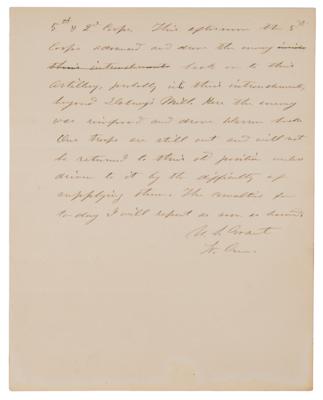 5th & 2d Corps. This afternoon the 5th
Corps advanced and drove the enemy inside
their intrenchments back on to this
Artillery, probably into their intrenchments,
beyond Dabney's Mill. Here the enemy
was reinforced and drove Warren back
Our troops are still out and will not
be returned to their old position unless
driven to it by the difficulty of
supplying them. The casualties for
to-day I will report as soon as learned.
U. S. Grant